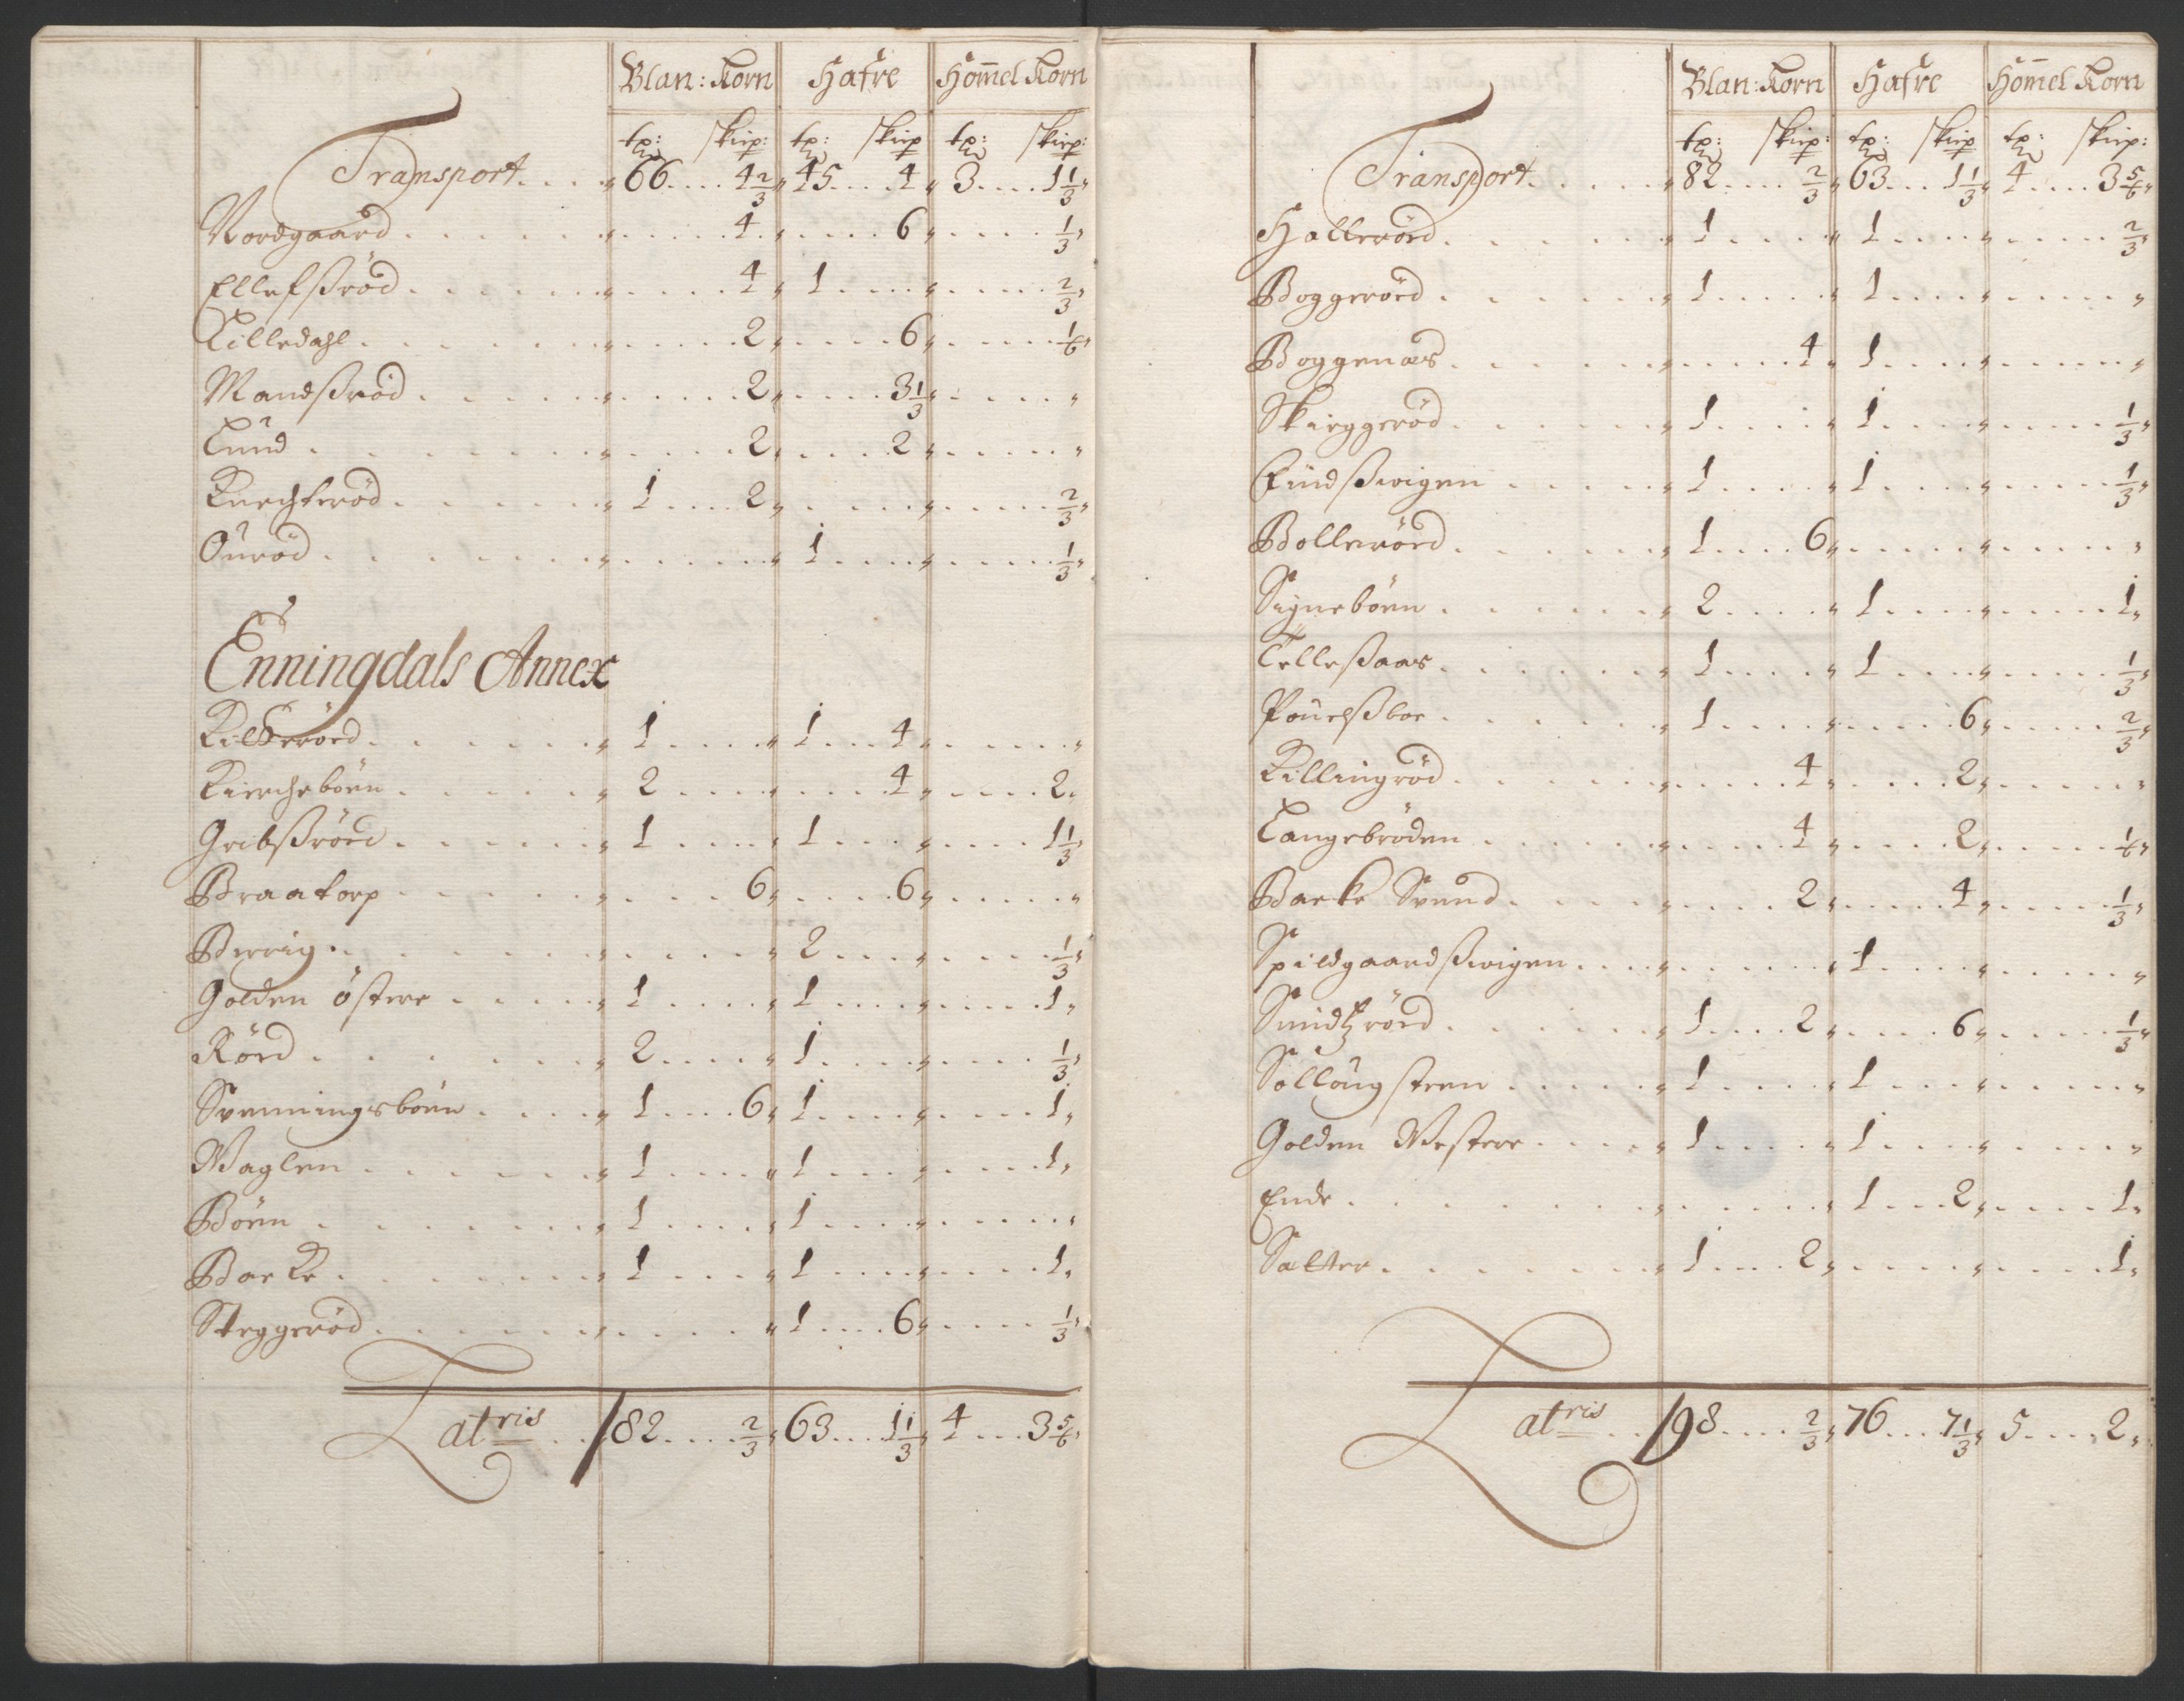 Blan: Korn Hafre Hom̄el Korn
tp: skiep: tp: skiep tp: skiep:
Transport 66 4 2/3 45 4 3 1 1/3
Nordgaard 4 6 1/3
Ellefsröd 4 1 2/3
Lilledahl 2 6 1/6
Mandsröd 2 3 1/3
Lund 2 2
Knechteröd 1 2 2/3
Öuröd 1 1/3
Enningdals Annex
Kilkerörd 1 1 4
Kircheböen 2 4 2
Gribsrörd 1 1 1 1/3
Braatorp 6 6
Berrig 2 1/3
Golden östere 1 1 1
Rörd 2 1 1/3
Svenningsböen 1 6 1 1
Waglen 1 1 1
Böen 1 1
Barke 1 1 1
Steggeröd 1 6 1/3
Latris 82 2/3 63 1 1/3 4 3 5/6
Blan: Korn Hafre Hom̄el Korn
tp: skiep: tp: skiep tp: skiep:
Transport 82 2/3 63 1 1/3 4 3 5/6
Hallerörd 1 1 2/3
Boggerörd 1 1
Boggenæs 4 1
Skieggeröd 1 1 1/3
Findsvigen 1 1 1/3
Bollerörd 1 6
Signeböen 2 1 1
Tellesaas 1 1 1/3
Pouelsboe 1 6 2/3
Killingröd 4 2
Langebröden 4 2 1/6
Barke Svend 2 4 1/3
Spildgaardsvigen 1
Smidtzrörd 1 2 6 1/3
Sollougsteen 1 1
Golden Westere 1 1
Ende 1 2 1
Salter 1 2 1
Latris 98 2/3 76 7 1/3 5 2